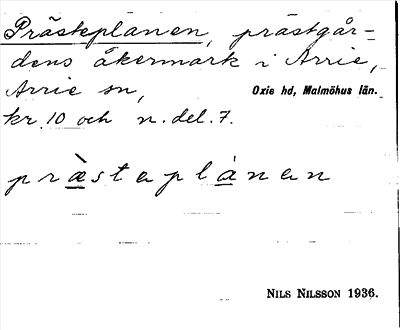 Prästeplanen, prästgår-
dens åkermark i Arrie,
Arrie sn, Oxie hd, Malmöhus län.
kr. 10 och n. del. 7.
præ̀steplánen
NILS NILSSON 1936.